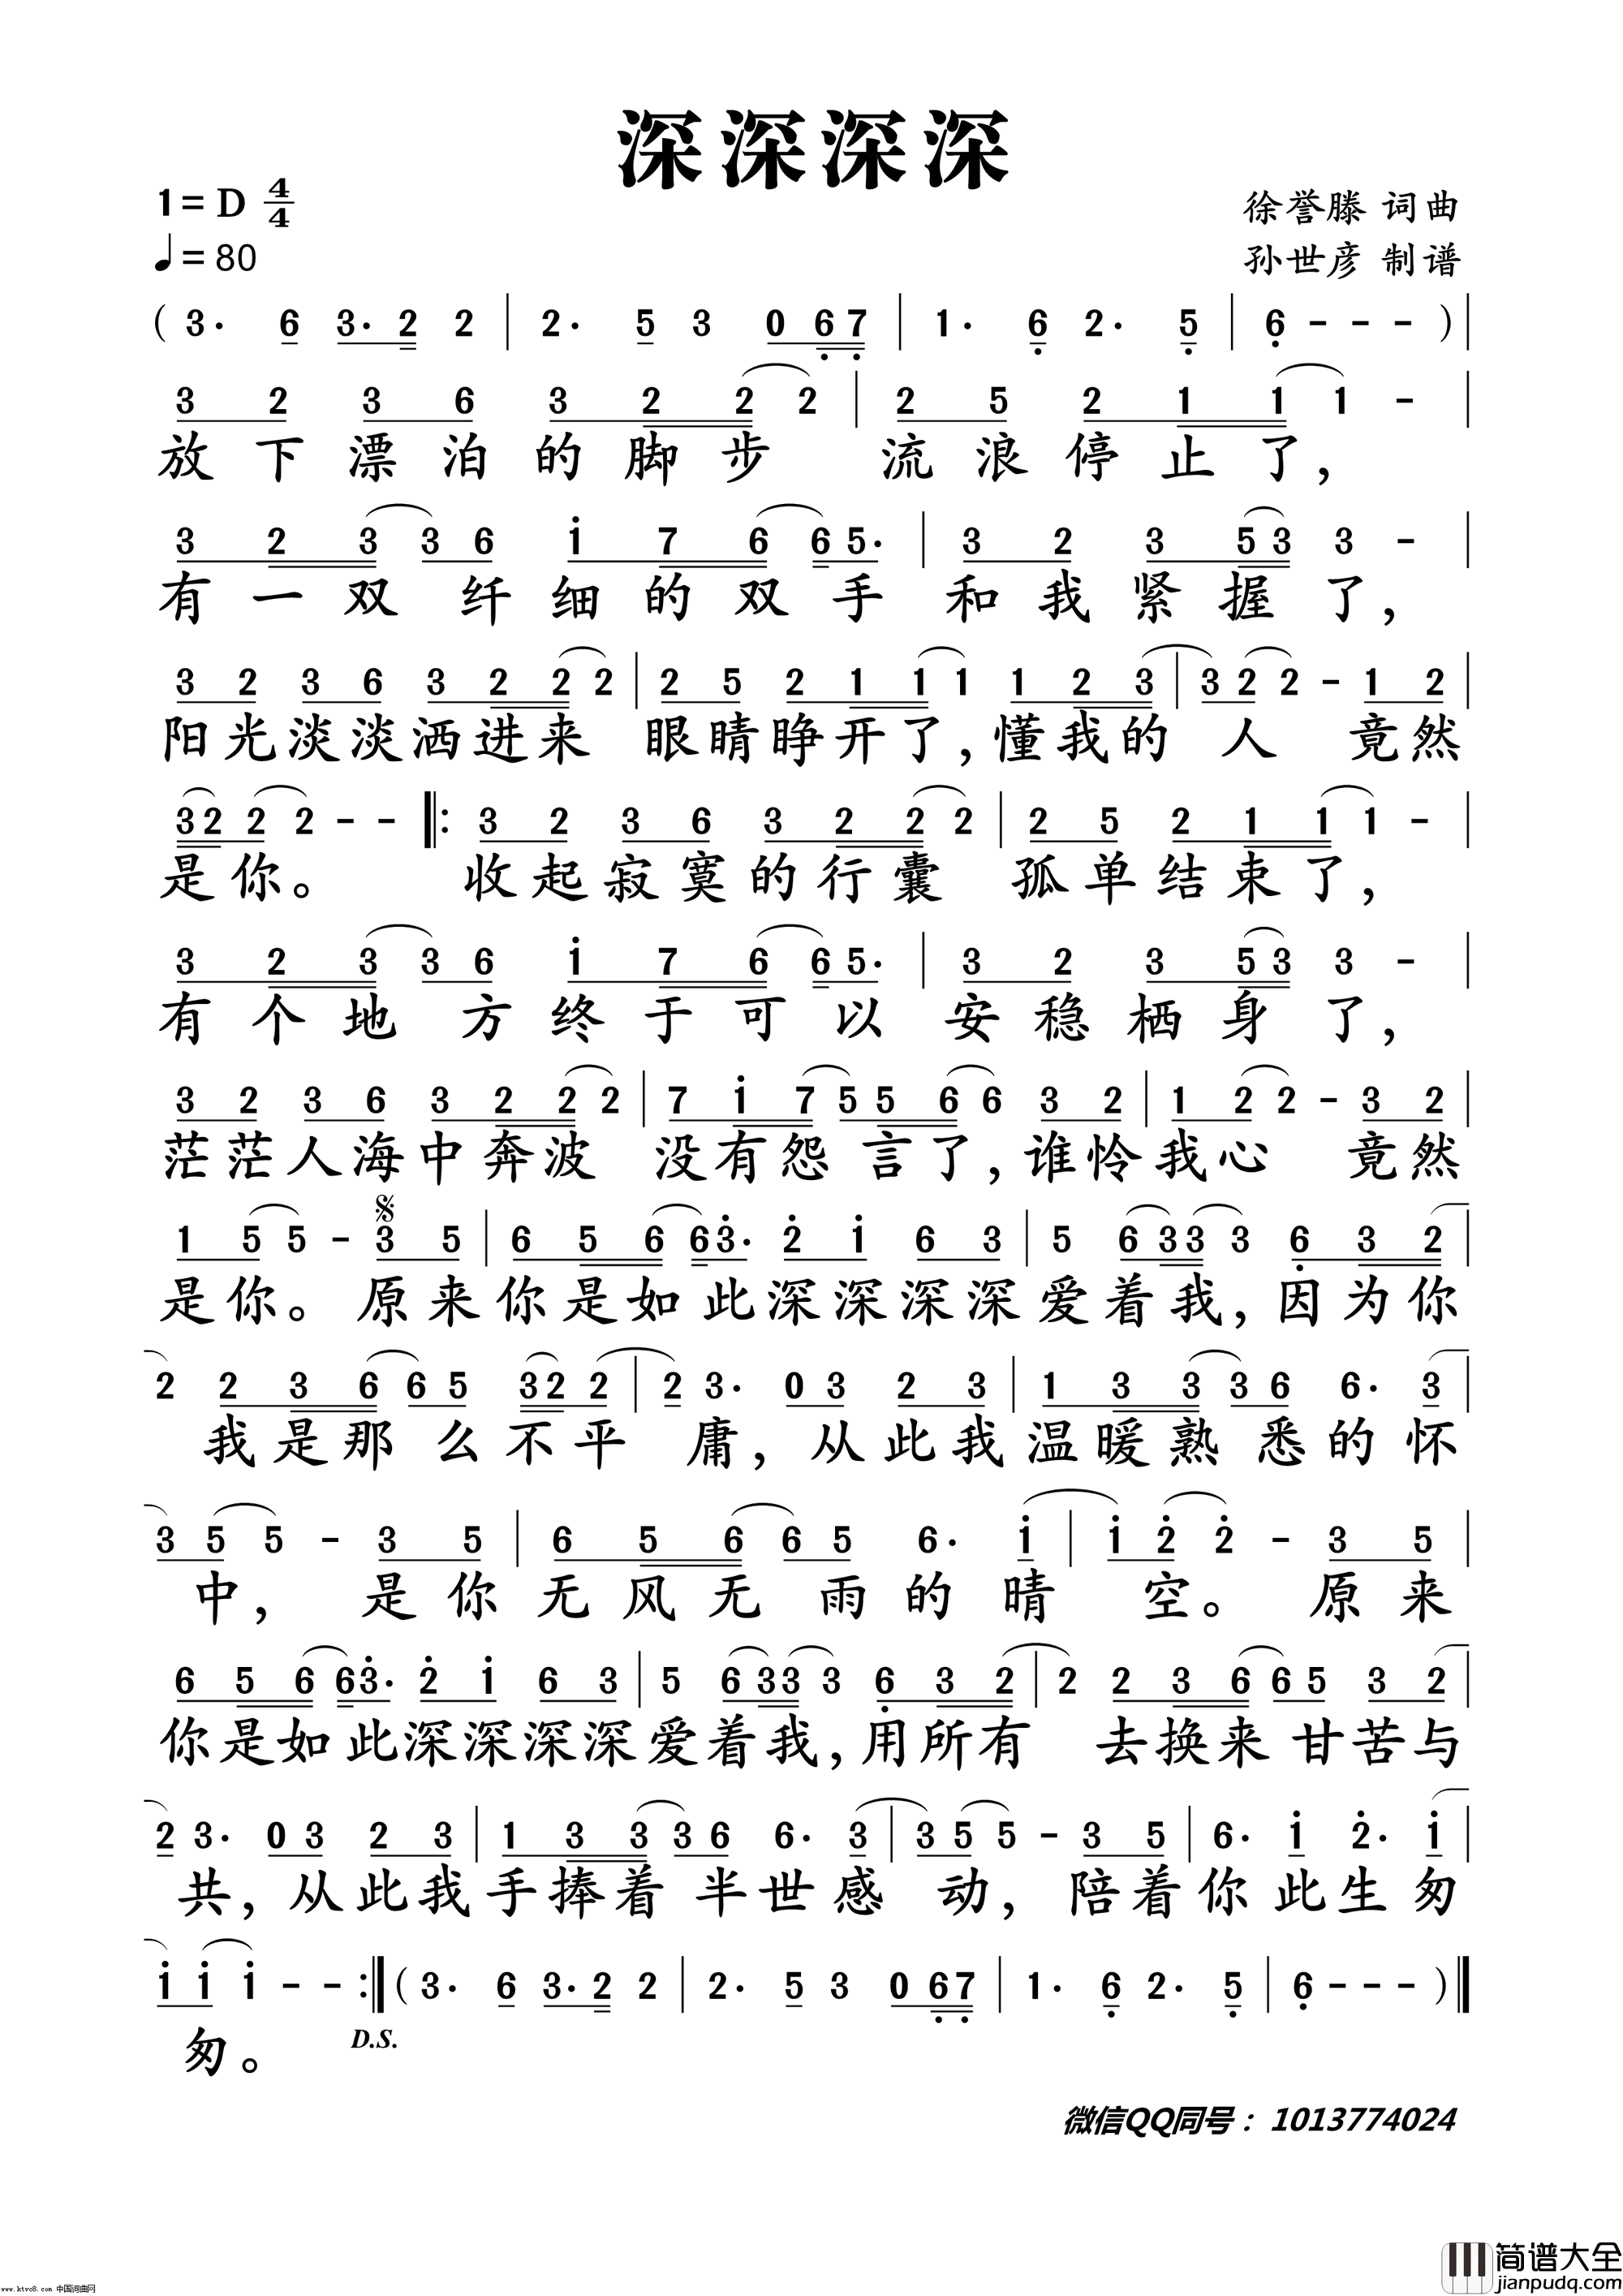 深深深深
1= D 4/4
徐誉滕 词曲
♩= 80
孙世彦 制谱
( 3· 6 3· 2 2 | 2· 5 3 0 6 7 | 1· 6 2· 5 | 6 - - - ) |
3 2 3 6 3 2 2 2 | 2 5 2 1 1 1 - |
放下漂泊的脚步 流浪停止了，
3 2 3 3 6 i 7 6 6 5· | 3 2 3 5 3 3 - |
有一双纤细的双手和我紧握了，
3 2 3 6 3 2 2 2 | 2 5 2 1 1 1 1 2 3 | 3 2 2 - 1 2 |
阳光淡淡洒进来 眼睛睁开了，懂我的人 竟然
3 2 2 2 - - ‖: 3 2 3 6 3 2 2 2 | 2 5 2 1 1 1 - |
是你。 收起寂寞的行囊 孤单结束了，
3 2 3 3 6 i 7 6 6 5· | 3 2 3 5 3 3 - |
有个地方终于可以安稳栖身了，
3 2 3 6 3 2 2 2 | 7 i 7 5 5 6 6 3 2 | 1 2 2 - 3 2 |
茫茫人海中奔波 没有怨言了，谁怜我心 竟然
1 5 5 - 3 5 | 6 5 6 6 3· 2 i 6 3 | 5 6 3 3 3 6 3 2 |
是你。原来你是如此深深深深爱着我，因为你
2 2 3 6 6 5 3 2 2 | 2 3· 0 3 2 3 | 1 3 3 3 6 6· 3 |
我是那么不平庸，从此我温暖熟悉的怀
3 5 5 - 3 5 | 6 5 6 6 5 6· i | i 2 2 - 3 5 |
中， 是你无风无雨的晴空。原来
6 5 6 6 3· 2 i 6 3 | 5 6 3 3 3 6 3 2 | 2 2 3 6 6 5 3 2 |
你是如此深深深深爱着我，用所有 去换来甘苦与
2 3· 0 3 2 3 | 1 3 3 3 6 6· 3 | 3 5 5 - 3 5 | 6· i 2· i |
共，从此我手捧着半世感动，陪着你此生匆
i i i - - :‖ ( 3· 6 3· 2 2 | 2· 5 3 0 6 7 | 1· 6 2· 5 | 6 - - - ) ‖
匆。 D.S.
微信QQ同号：1013774024
简谱大全
www.ktvc8.com 中国词曲网
jianpudq.com